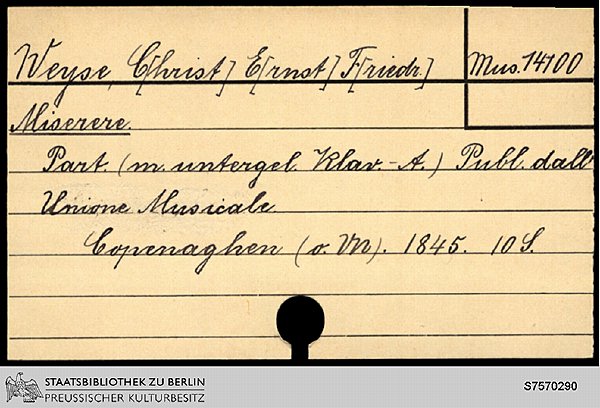 Weyse, C[hrist] E[rnst] F[riedr.]
Mus. 14100
Miserere.
Part. (m. untergel. Klav.-A.) Publ. dall
Unione Musicale
Copenaghen (o. VN). 1845. 10 S.
STAATSBIBLIOTHEK ZU BERLIN
PREUSSISCHER KULTURBESITZ
S7570290